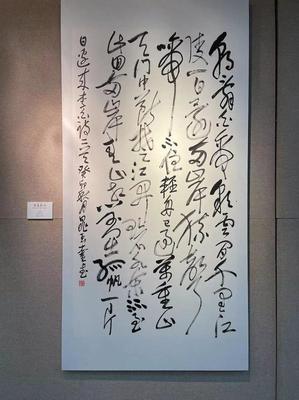 朝辞白帝彩云间千里江
陵一日还两岸猿声
啼不住轻舟已过万重山
天门中断楚江开碧水东流至
此回两岸青山相对出孤帆一片
日边来李白诗二首癸卯秋月